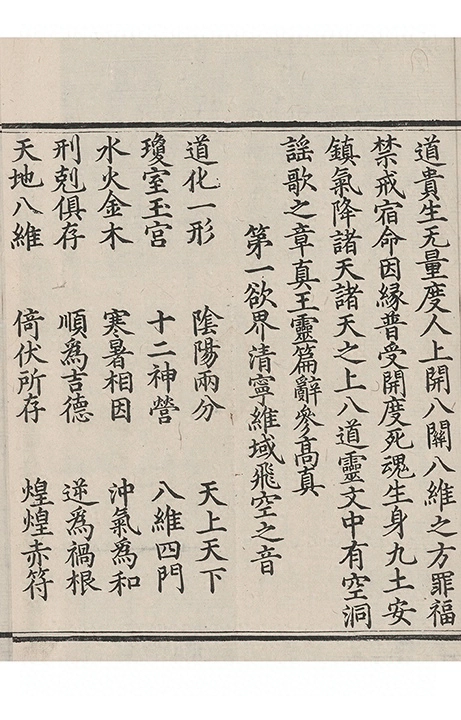 道貴生无量度人上開八關八維之方罪福
禁戒宿命因緣普受開度死魂生身九土安
鎮氣降諸天諸天之上八道靈文中有空洞
謡歌之章真王靈篇辭參髙真
第一欲界清寧維域飛空之音
道化一形　陰陽兩分　天上天下
瓊室玉宮　十二神營　八維四門
水火金木　寒暑相因　沖氣爲和
刑剋俱存　順爲吉德　逆爲禍根
天地八維　倚伏所存　煌煌赤符